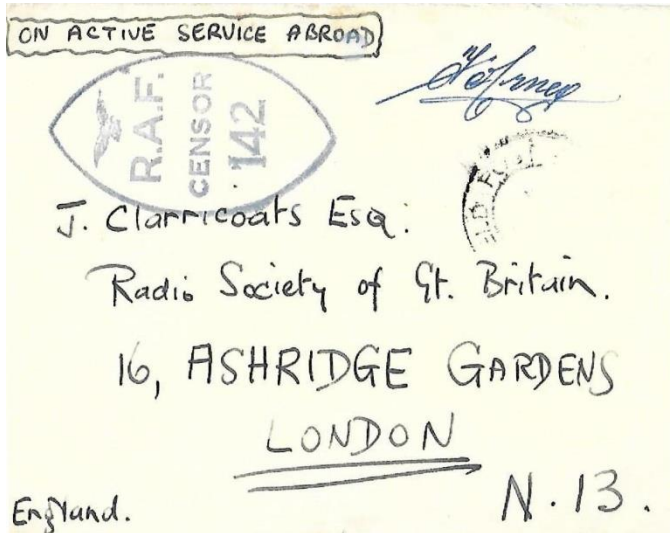 ON ACTIVE SERVICE ABROAD
R.A.F.
CENSOR
142
J. Clarricoats Esq:
Radio Society of Gt. Britain.
16, ASHRIDGE GARDENS
LONDON
N.13.
England.